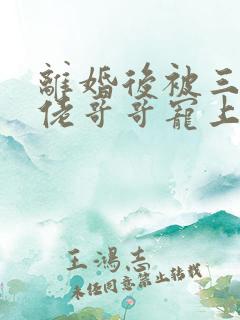 離婚後被三
佬哥哥寵上
王鴻志
未经同意禁止转载